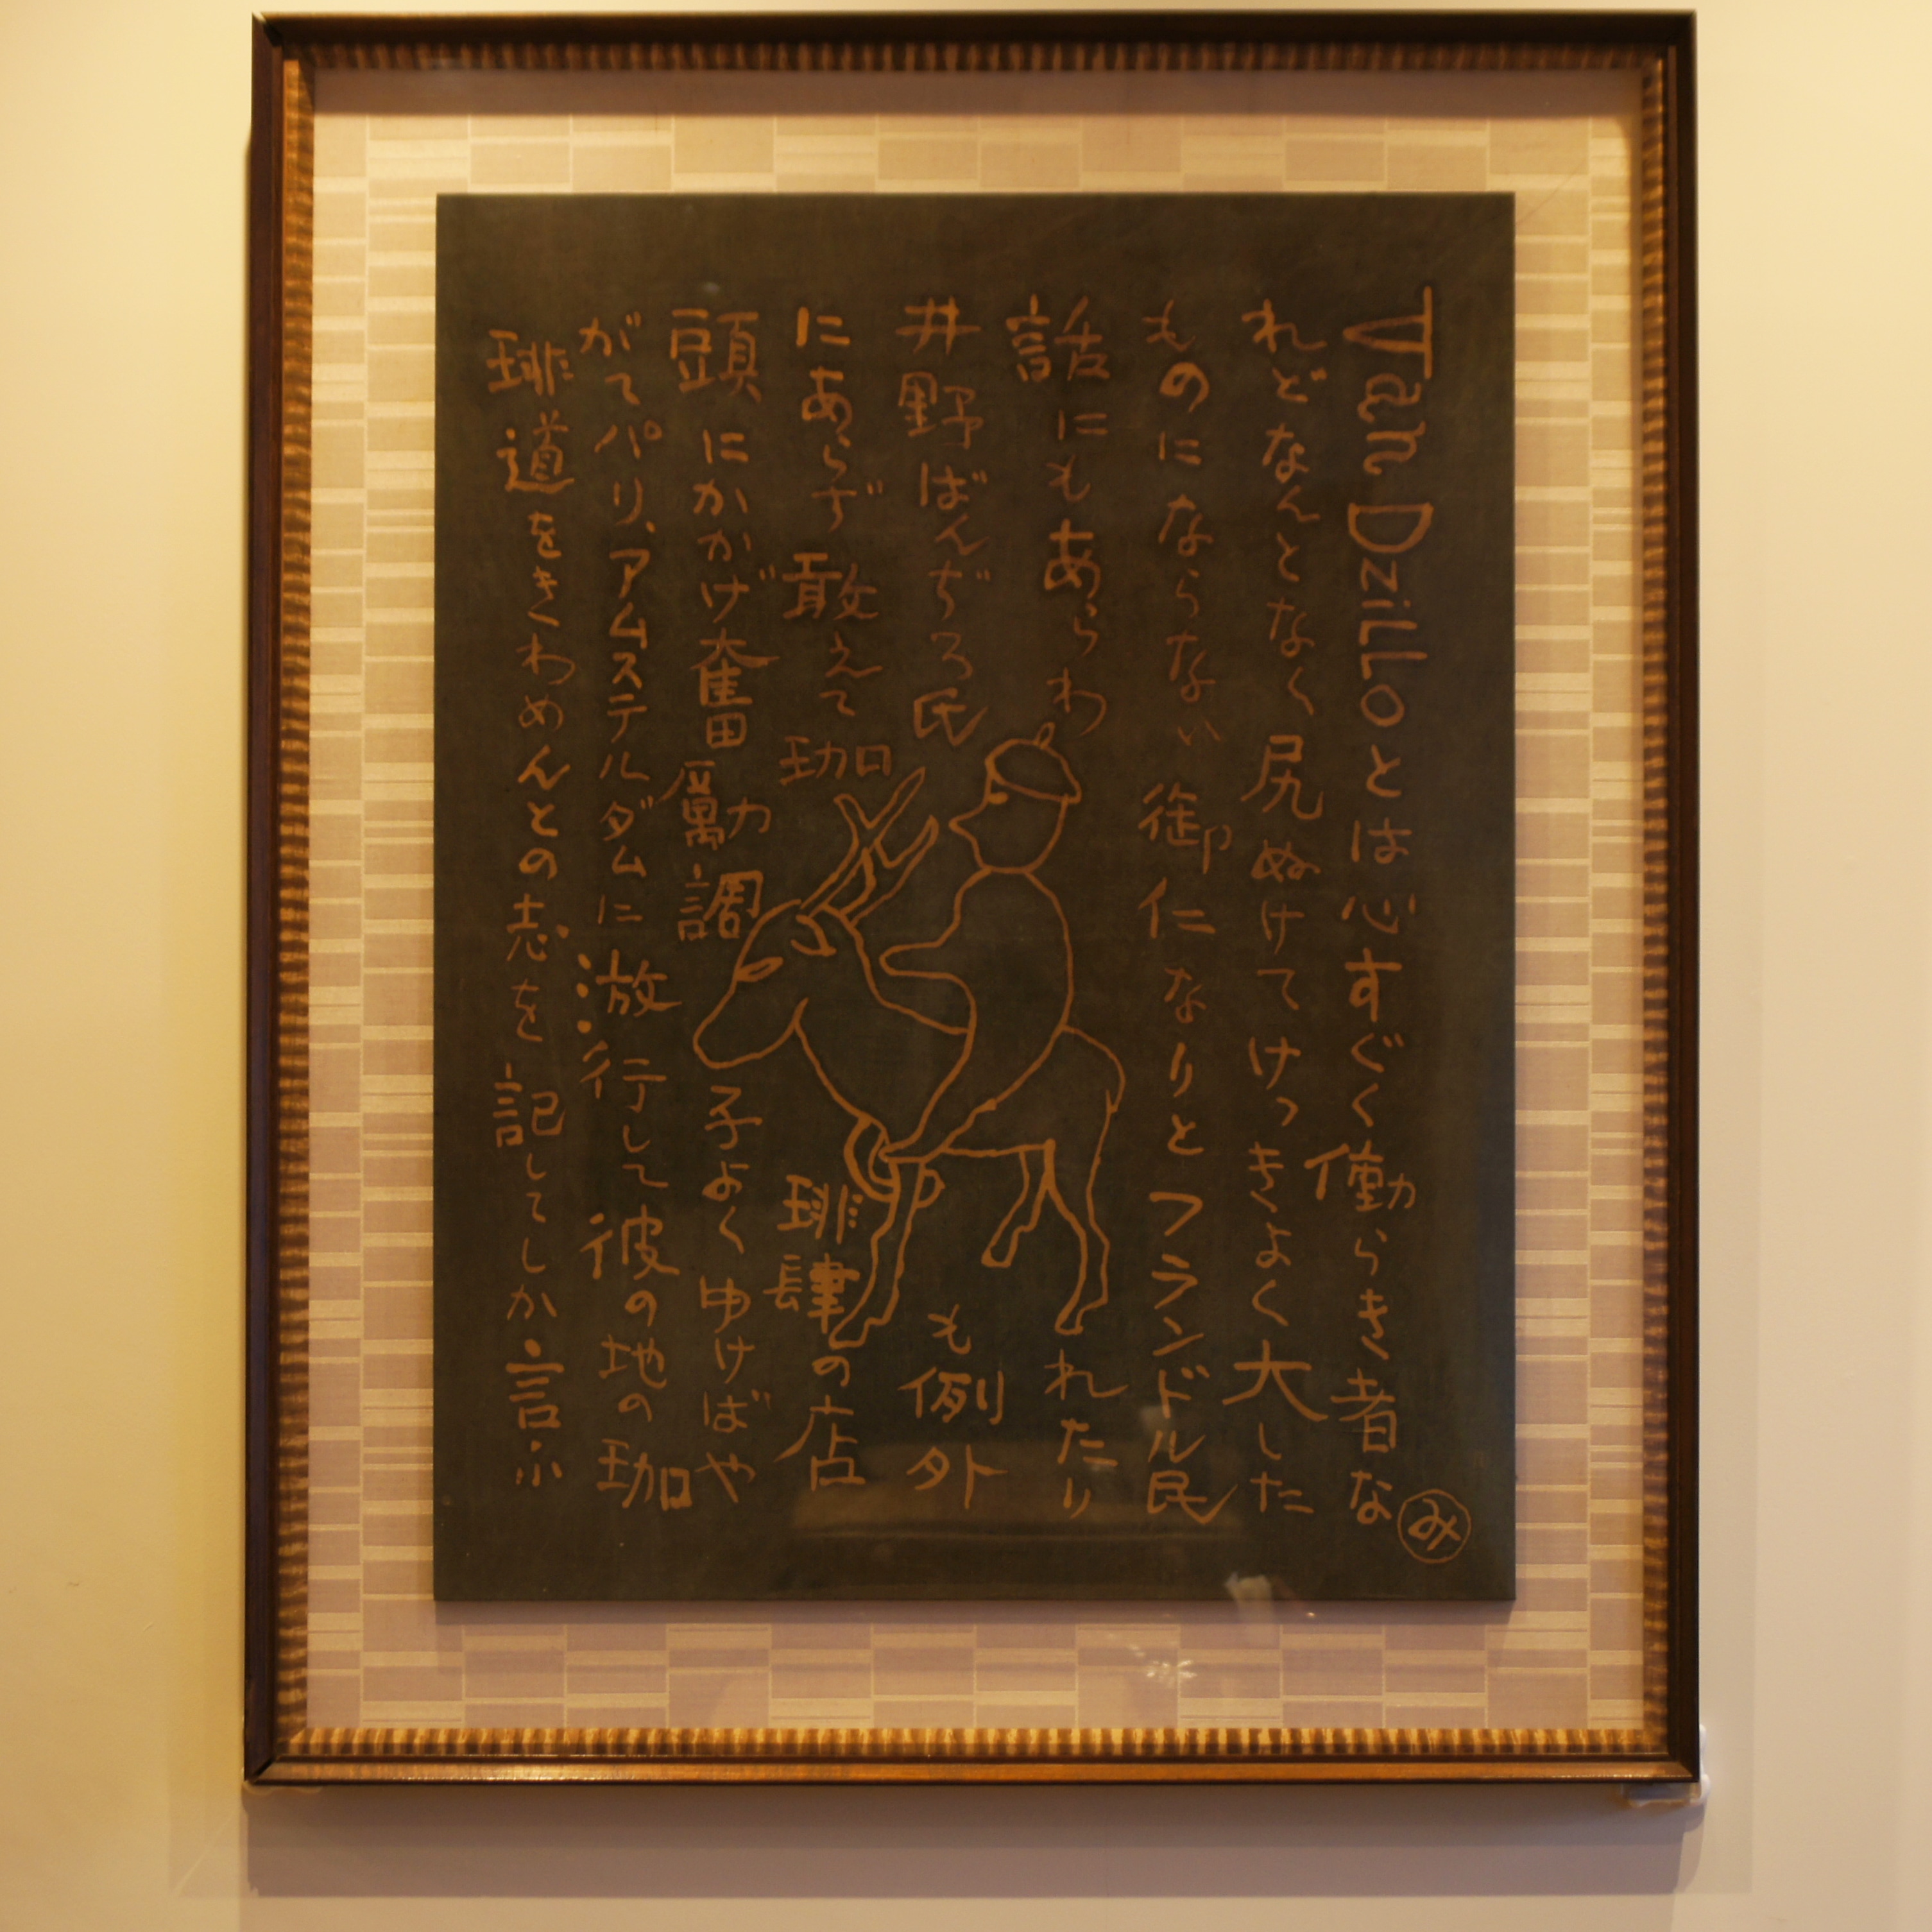 Van DziLLoとは心すぐく働らき者な
れどなんとなく尻ぬけてけっきよく大した
ものにならない御仁なりとフランドル民
話にもあらわれたり
井野ばんぢろ氏も例外
にあらず敢えて珈琲肆の店
頭にかかげ奮勵調子よくゆけばや
がてパリ、アムステルダムに放行して彼の地の珈
琲道をきわめんとの志を記してしか言ふ
み